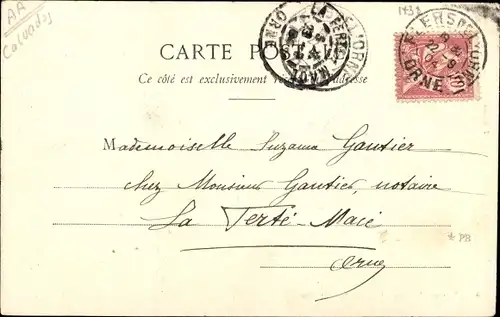 AR
Calvados
1432
CARTE POSTALE
Ce côté est exclusivement réservé à l'adresse
LA FERTÉ MACÉ
ORNE
FLERS
ORNE
Mademoiselle Suzana Gautier
chez Monsieur Gautier, notaire
La Ferté-Macé
Orne
*PB